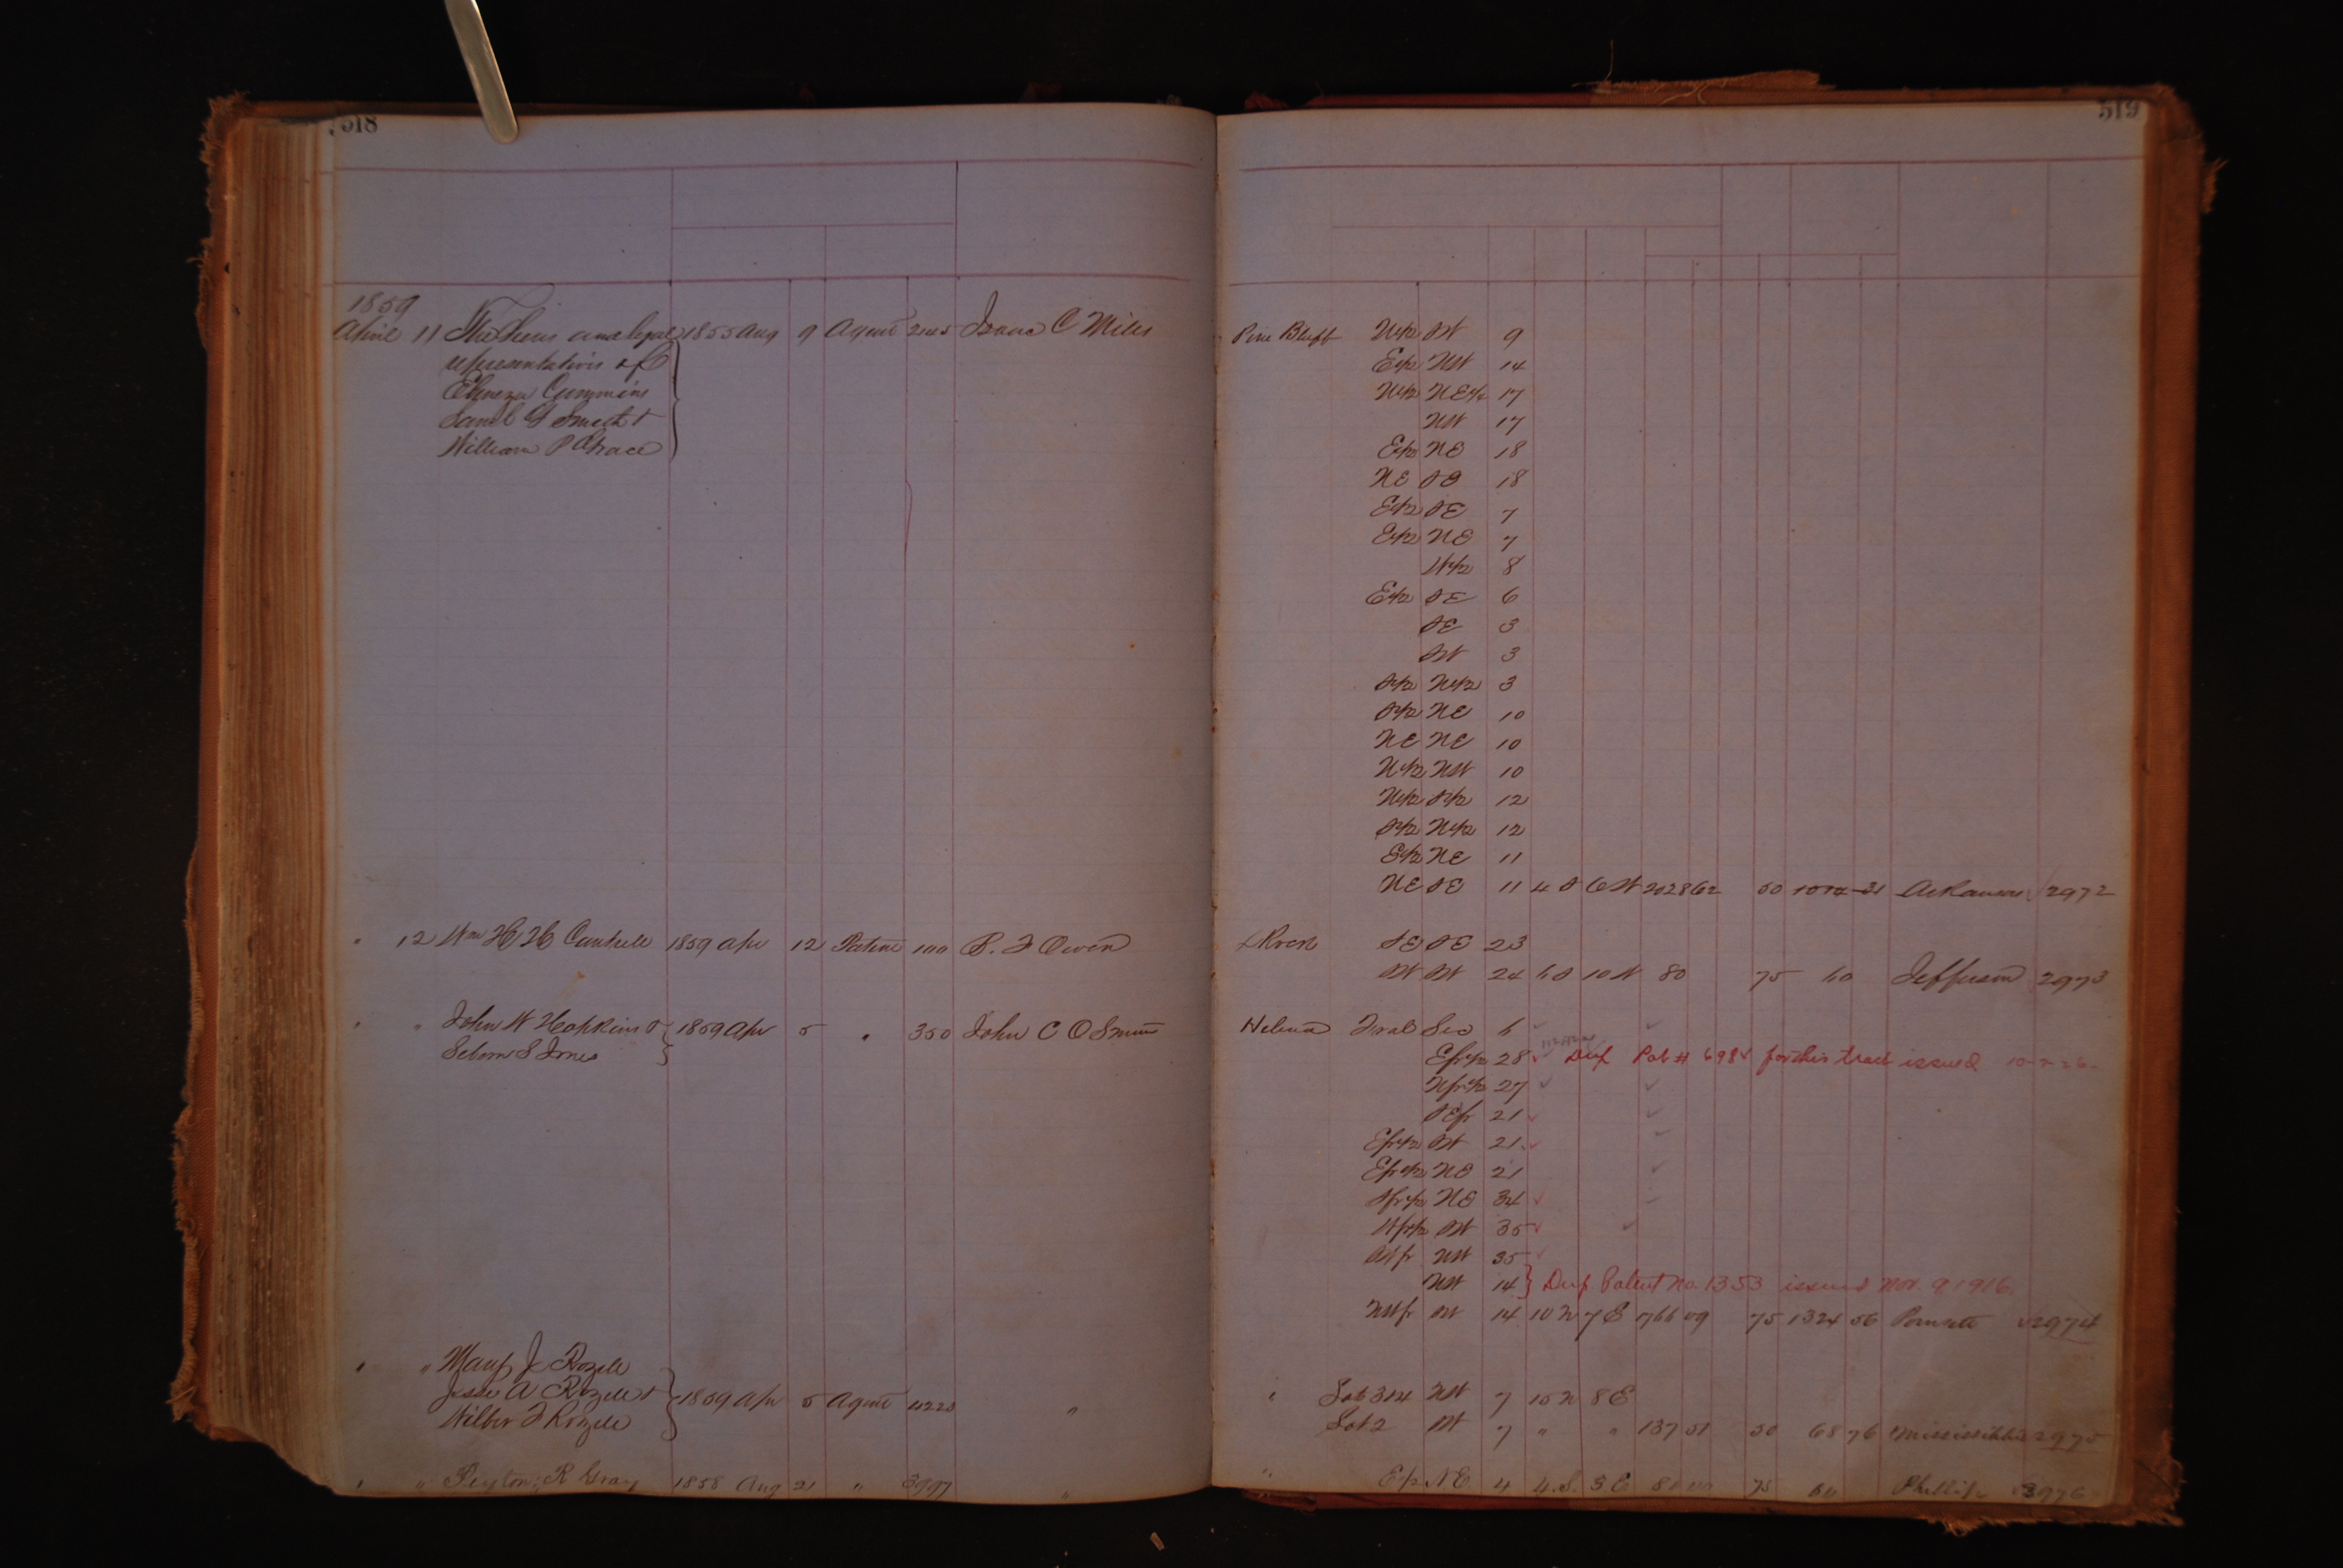 518
519
1859
April 11 The heirs and legal 1855 Aug 9 Agent 2145 Isaac C Mills
representatives of
Ebenezer Cummins
Saml G Smith &
William P Grace
Pine Bluff N1/2 SW 9
E1/2 NW 14
N1/2 NE1/4 17
NW 17
E1/2 NE 18
NE SE 18
E1/2 SE 7
E1/2 NE 7
W1/2 8
E1/2 SE 6
SE 3
SW 3
S1/2 N1/2 3
S1/2 NE 10
NE NE 10
N1/2 NW 10
N1/2 S1/2 12
S1/2 N1/2 12
E1/2 NE 11
NE SE 11 4 S 6 W 2028 62 50 1014-31 Arkansas 2972
" 12 Wm H H Cantrell 1859 Apr 12 Patent 100 B. F Owen
L Rock SE SE 23
SW SW 24 6 S 10 W 80 75 60 Jefferson 2973
" " John W Hopkins & 1859 Apr 5 " 350 John C O Smith
Seborn S Jones
Helena Fral Sec 6
E fr 1/2 28 Dup Pat # 698 for this tract issued 10-7-26
N fr 1/2 27
SE fr 21
E fr 1/2 SW 21
E fr 1/2 NE 21
S fr 1/2 NE 34
W fr 1/2 SW 35
SW fr NW 35
NW 14 } Dup. Patent No. 1353 issued Nov. 9 1916.
NW fr SW 14 10 N 7 E 766 09 75 1324 56 Poinsett 2974
" " Mary J Rozell
Jesse A Rozell & 1859 Apr 5 Agent 4223 "
Wilber F Rozell
" Lot 3&4 NW 7 15 N 8 E
Lot 2 SW 7 " " 137 51 50 68 76 Mississippi 2975
" " Peyton R Gray 1858 Aug 21 " 3997 "
" E1/2 NE 4 4. S. 3 E 80 00 75 60 Phillips 2976